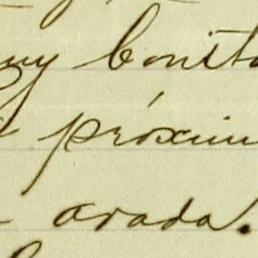 muy bonita
próxim
arada.